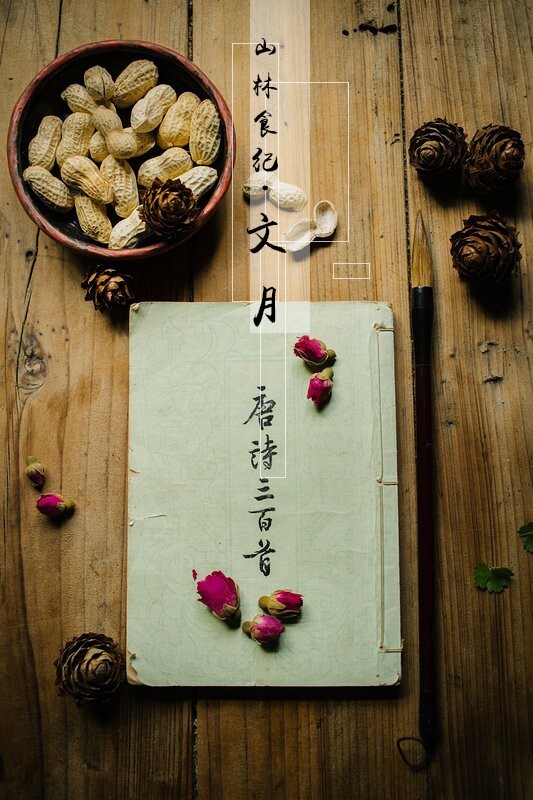 山林食纪·文月
唐诗三百首